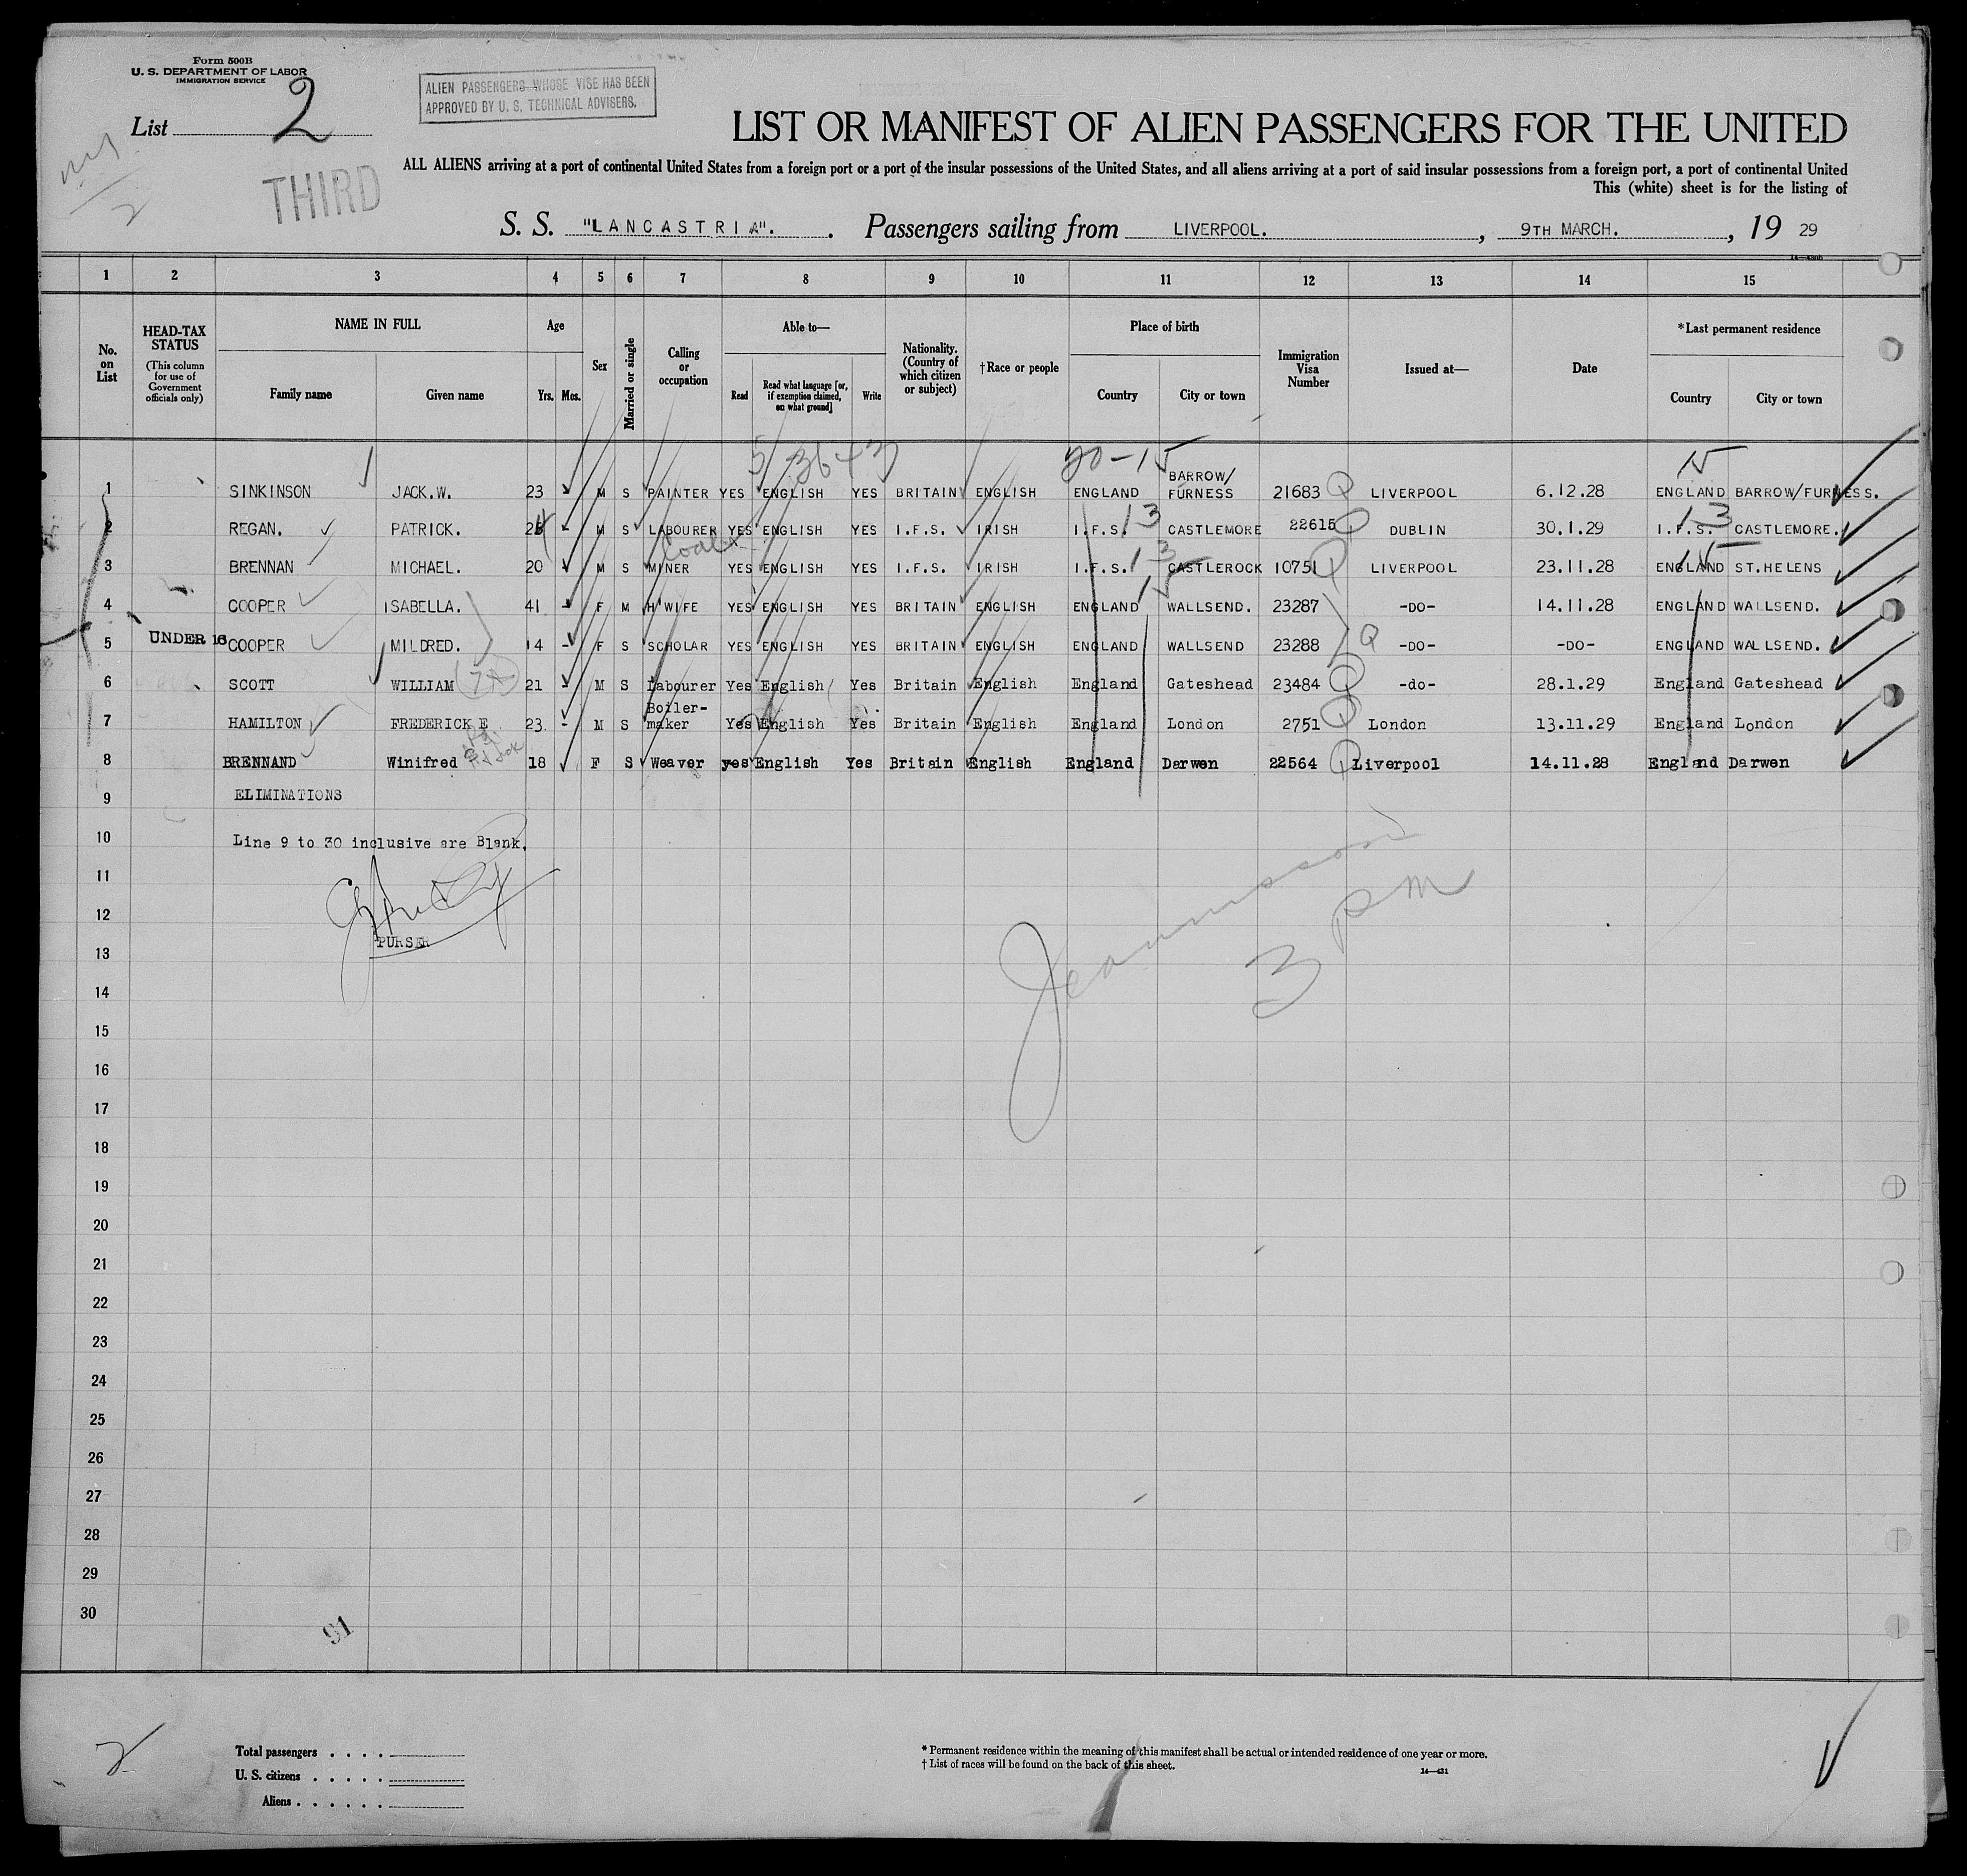 Form 500B
U. S. DEPARTMENT OF LABOR
IMMIGRATION SERVICE
List 2
ALIEN PASSENGERS WHOSE VISE HAS BEEN
APPROVED BY U. S. TECHNICAL ADVISERS.
THIRD
LIST OR MANIFEST OF ALIEN PASSENGERS FOR THE UNITED
ALL ALIENS arriving at a port of continental United States from a foreign port or a port of the insular possessions of the United States, and all aliens arriving at a port of said insular possessions from a foreign port, a port of continental United
This (white) sheet is for the listing of
S. S. "LANCASTRIA". Passengers sailing from LIVERPOOL. , 9TH MARCH. , 19 29
1 2 3 4 5 6 7 8 9 10 11 12 13 14 15
No. on List
HEAD-TAX STATUS (This column for use of Government officials only)
NAME IN FULL
Family name Given name
Age
Yrs. Mos.
Sex
Married or single
Calling or occupation
Able to—
Read Read what language [or, if exemption claimed, on what ground] Write
Nationality. (Country of which citizen or subject)
†Race or people
Place of birth
Country City or town
Immigration Visa Number
Issued at—
Date
*Last permanent residence
Country City or town
20-15 15
1 SINKINSON JACK.W. 23 M S PAINTER YES ENGLISH YES BRITAIN ENGLISH ENGLAND BARROW/ FURNESS 21683 Q LIVERPOOL 6.12.28 ENGLAND BARROW/FURNESS.
2 REGAN. PATRICK. M S LABOURER YES ENGLISH YES I.F.S. IRISH I.F.S. 13 CASTLEMORE 22615 Q DUBLIN 30.1.29 I.F.S. 13 CASTLEMORE.
3 BRENNAN MICHAEL. 20 M S Coal MINER YES ENGLISH YES I.F.S. IRISH I.F.S. 13 CASTLEROCK 10751 Q LIVERPOOL 23.11.28 ENGLAND 15 ST.HELENS
4 COOPER ISABELLA. 41 - F M H'WIFE YES ENGLISH YES BRITAIN ENGLISH ENGLAND 15 WALLSEND. 23287 -DO- 14.11.28 ENGLAND WALLSEND.
5 UNDER 16 COOPER MILDRED. 14 - F S SCHOLAR YES ENGLISH YES BRITAIN ENGLISH ENGLAND WALLSEND 23288 Q -DO- -DO- ENGLAND WALLSEND.
6 SCOTT WILLIAM 21 - M S Labourer Yes English Yes Britain English England Gateshead 23484 Q -do- 28.1.29 England Gateshead
7 HAMILTON FREDERICK E 23 - M S Boiler- maker Yes English Yes Britain English England London 2751 Q London 13.11.29 England London
8 BRENNAND Winifred 18 F S Weaver yes English Yes Britain English England Darwen 22564 Q Liverpool 14.11.28 England Darwen
9 ELIMINATIONS
10 Line 9 to 30 inclusive are Blank.
11
12
PURSER
13
3 PM
14
15
16
17
18
19
20
21
22
23
24
25
26
27
28
29
30
91
2
Total passengers . . . .
U. S. citizens . . . . .
Aliens . . . . . .
* Permanent residence within the meaning of this manifest shall be actual or intended residence of one year or more.
† List of races will be found on the back of this sheet.
14—431